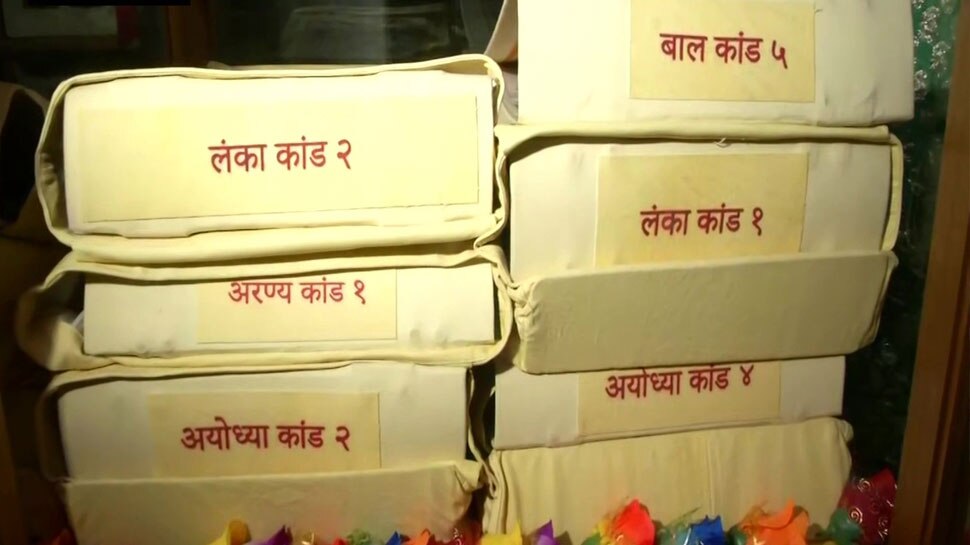 लंका कांड २
अरण्य कांड १
अयोध्या कांड २
बाल कांड ५
लंका कांड १
अयोध्या कांड ४